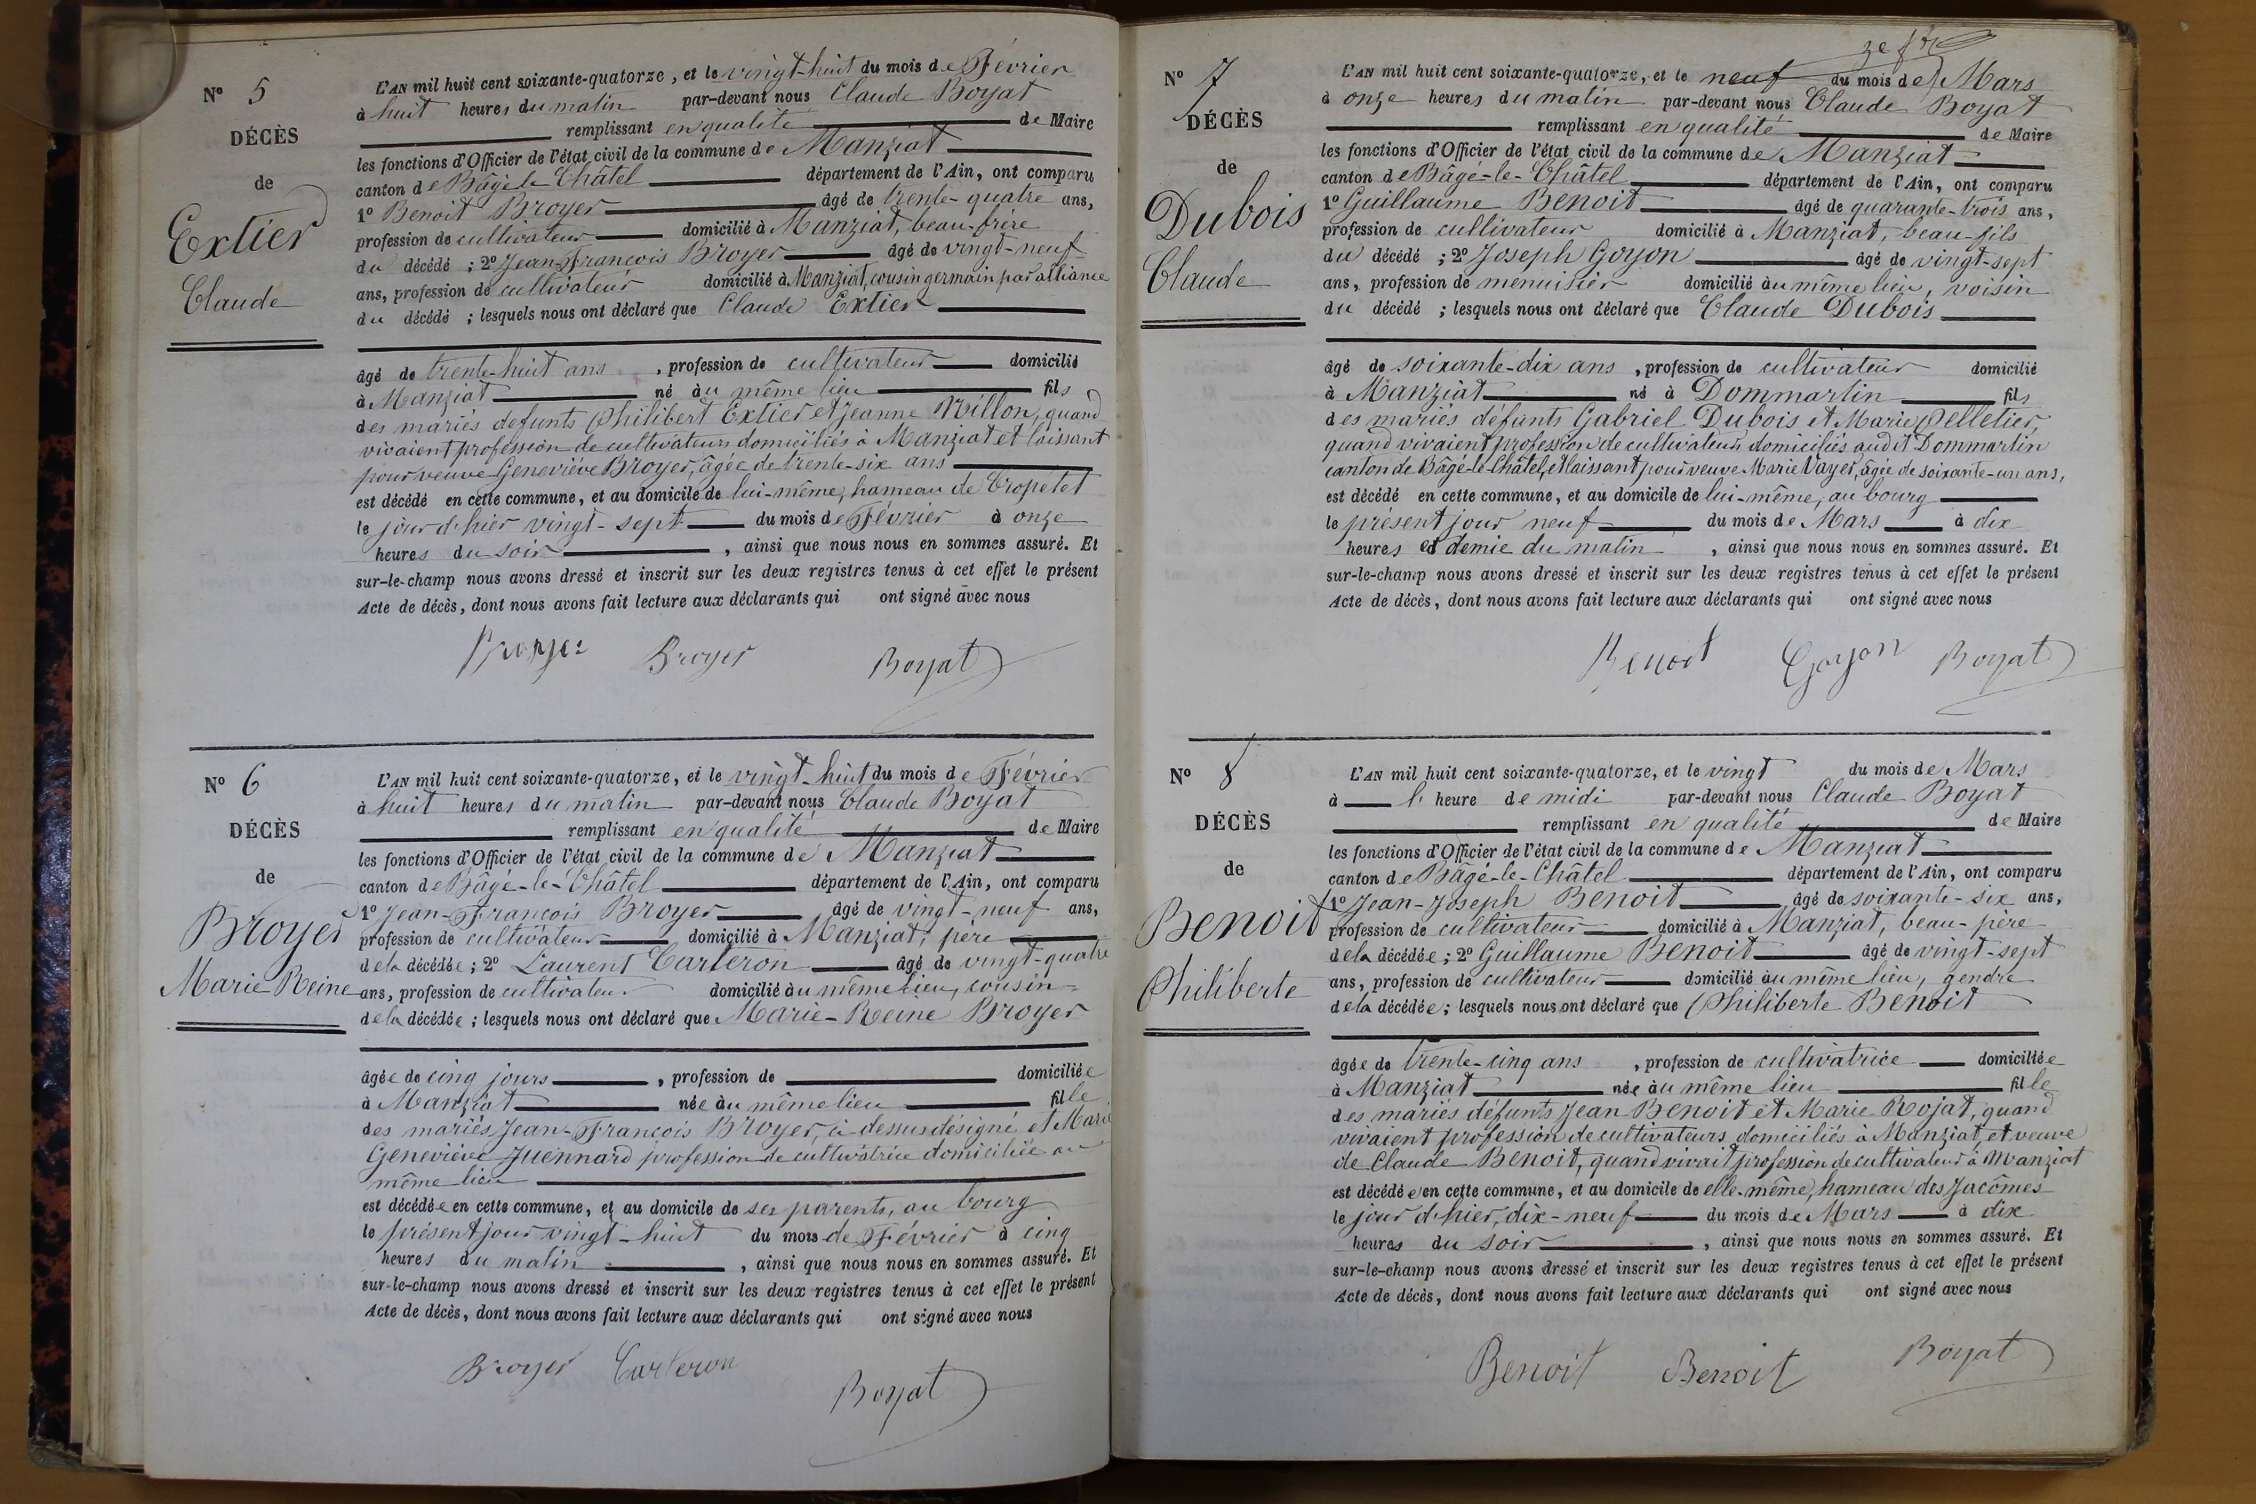 N° 5
DÉCÈS
de
Extier
Claude
L'AN mil huit cent soixante-quatorze, et le vingt-huit du mois de Février
à huit heures du matin par-devant nous Claude Boyat
remplissant en qualité de Maire
les fonctions d'Officier de l'état civil de la commune de Manziat
canton de Bâgé-le-Châtel département de l'Ain, ont comparu
1° Benoit Broyer âgé de trente-quatre ans,
profession de cultivateur domicilié à Manziat, beau-frère
du décédé ; 2° Jean-François Broyer âgé de vingt-neuf
ans, profession de cultivateur domicilié à Manziat, cousin germain par alliance
du décédé ; lesquels nous ont déclaré que Claude Extier
âgé de trente-huit ans , profession de cultivateur domicilié
à Manziat né au même lieu fils
des mariés défunts Philibert Extier et Jeanne Millon, quand
vivaient profession de cultivateurs domiciliés à Manziat et laissant
pour veuve Geneviève Broyer, âgée de trente-six ans
est décédé en cette commune, et au domicile de lui-même, hameau de Cropetet
le jour d'hier vingt-sept du mois de Février à onze
heures du soir , ainsi que nous nous en sommes assuré. Et
sur-le-champ nous avons dressé et inscrit sur les deux registres tenus à cet effet le présent
Acte de décès, dont nous avons fait lecture aux déclarants qui ont signé avec nous
Broyer Broyer Boyat
N° 6
DÉCÈS
de
Broyer
Marie Reine
L'AN mil huit cent soixante-quatorze, et le vingt-huit du mois de Février
à huit heures du matin par-devant nous Claude Boyat
remplissant en qualité de Maire
les fonctions d'Officier de l'état civil de la commune de Manziat
canton de Bâgé-le-Châtel département de l'Ain, ont comparu
1° Jean-François Broyer âgé de vingt-neuf ans,
profession de cultivateur domicilié à Manziat, père
de la décédée ; 2° Laurent Carleron âgé de vingt-quatre
ans, profession de cultivateur domicilié au même lieu, cousin
de la décédée ; lesquels nous ont déclaré que Marie-Reine Broyer
âgée de cinq jours , profession de domiciliée
à Manziat née au même lieu fille
des mariés Jean-François Broyer, ci-dessus désigné et Marie
Geneviève Juennard profession de cultivatrice domiciliée au
même lieu
est décédée en cette commune, et au domicile de ses parents, au bourg
le présent jour vingt-huit du mois de Février à cinq
heures du matin , ainsi que nous nous en sommes assuré. Et
sur-le-champ nous avons dressé et inscrit sur les deux registres tenus à cet effet le présent
Acte de décès, dont nous avons fait lecture aux déclarants qui ont signé avec nous
Broyer Carleron Boyat
N° 7
DÉCÈS
de
Dubois
Claude
L'AN mil huit cent soixante-quatorze, et le neuf du mois de Mars
à onze heures du matin par-devant nous Claude Boyat
remplissant en qualité de Maire
les fonctions d'Officier de l'état civil de la commune de Manziat
canton de Bâgé-le-Châtel département de l'Ain, ont comparu
1° Guillaume Benoit âgé de quarante-trois ans,
profession de cultivateur domicilié à Manziat, beau-fils
du décédé ; 2° Joseph Goyon âgé de vingt-sept
ans, profession de menuisier domicilié au même lieu, voisin
du décédé ; lesquels nous ont déclaré que Claude Dubois
âgé de soixante-dix ans , profession de cultivateur domicilié
à Manziat né à Dommartin fils
des mariés défunts Gabriel Dubois et Marie Pelletier,
quand vivaient profession de cultivateurs domiciliés audit Dommartin
canton de Bâgé-le-Châtel, et laissant pour veuve Marie Vayer, âgée de soixante-un ans,
est décédé en cette commune, et au domicile de lui-même, au bourg
le présent jour neuf du mois de Mars à dix
heures et demie du matin , ainsi que nous nous en sommes assuré. Et
sur-le-champ nous avons dressé et inscrit sur les deux registres tenus à cet effet le présent
Acte de décès, dont nous avons fait lecture aux déclarants qui ont signé avec nous
Benoit Goyon Boyat
N° 8
DÉCÈS
de
Benoit
Philiberte
L'AN mil huit cent soixante-quatorze, et le vingt du mois de Mars
à l' heure de midi par-devant nous Claude Boyat
remplissant en qualité de Maire
les fonctions d'Officier de l'état civil de la commune de Manziat
canton de Bâgé-le-Châtel département de l'Ain, ont comparu
1° Jean-Joseph Benoit âgé de soixante-six ans,
profession de cultivateur domicilié à Manziat, beau-père
de la décédée ; 2° Guillaume Benoit âgé de vingt-sept
ans, profession de cultivateur domicilié au même lieu, gendre
de la décédée ; lesquels nous ont déclaré que Philiberte Benoit
âgée de trente-cinq ans , profession de cultivatrice domiciliée
à Manziat née au même lieu fille
des mariés défunts Jean Benoit et Marie Rojat, quand
vivaient profession de cultivateurs domiciliés à Manziat, et veuve
de Claude Benoit, quand vivait profession de cultivateur à Manziat
est décédée en cette commune, et au domicile de elle-même, hameau des Jacômes
le jour d'hier, dix-neuf du mois de Mars à dix
heures du soir , ainsi que nous nous en sommes assuré. Et
sur-le-champ nous avons dressé et inscrit sur les deux registres tenus à cet effet le présent
Acte de décès, dont nous avons fait lecture aux déclarants qui ont signé avec nous
Benoit Benoit Boyat